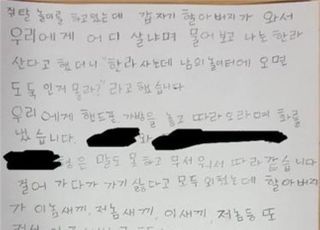 탈 놀이를 하고있는데 갑자기 할아버지가 와서
우리에게 어디 살냐며 물어보고 나는 한라
산다고 했더니 "한라사는데 남의놀이터에 오면
도둑 인거 몰라?" 라고 했습니다
우리에게 핸드폰 가방을 놓고 따라오라며 화를
냈습니다. 와
형은 말도 못하고 무서워서 따라 갔습니다
걸어 가다가 가기 싫다고 모두 외쳤는데 할아버지
가 이놈새끼, 저놈새끼, 이새끼, 저놈등 또